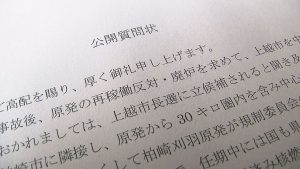 公開質問状
ご高配を賜り、厚く御礼申し上げます。
事故後、原発の再稼働反対・廃炉を求めて、上越市を中
おかれましては、上越市長選に立候補されると聞き及
崎市に隣接し、原発から30キロ圏内を含み中心
して柏崎刈羽原発が規制委員会
任期中には国も県